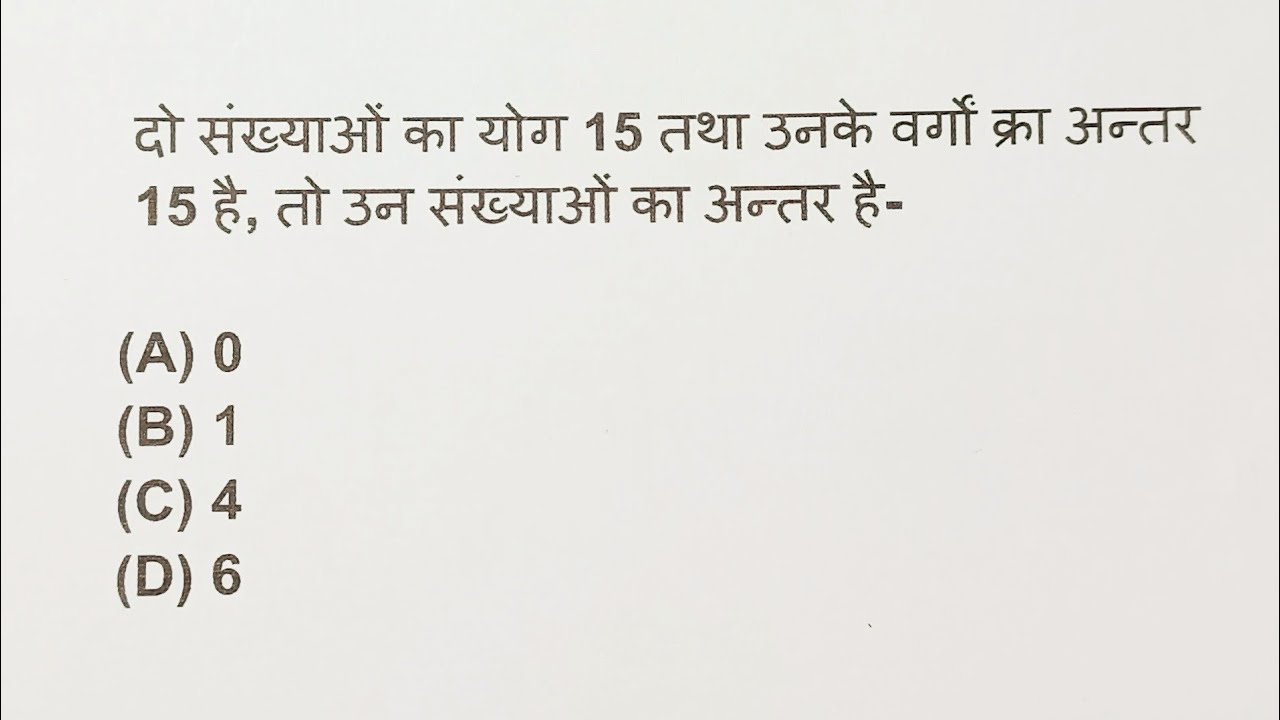 दो संख्याओं का योग 15 तथा उनके वर्गों का अन्तर
15 है, तो उन संख्याओं का अन्तर है-
(A) 0
(B) 1
(C) 4
(D) 6